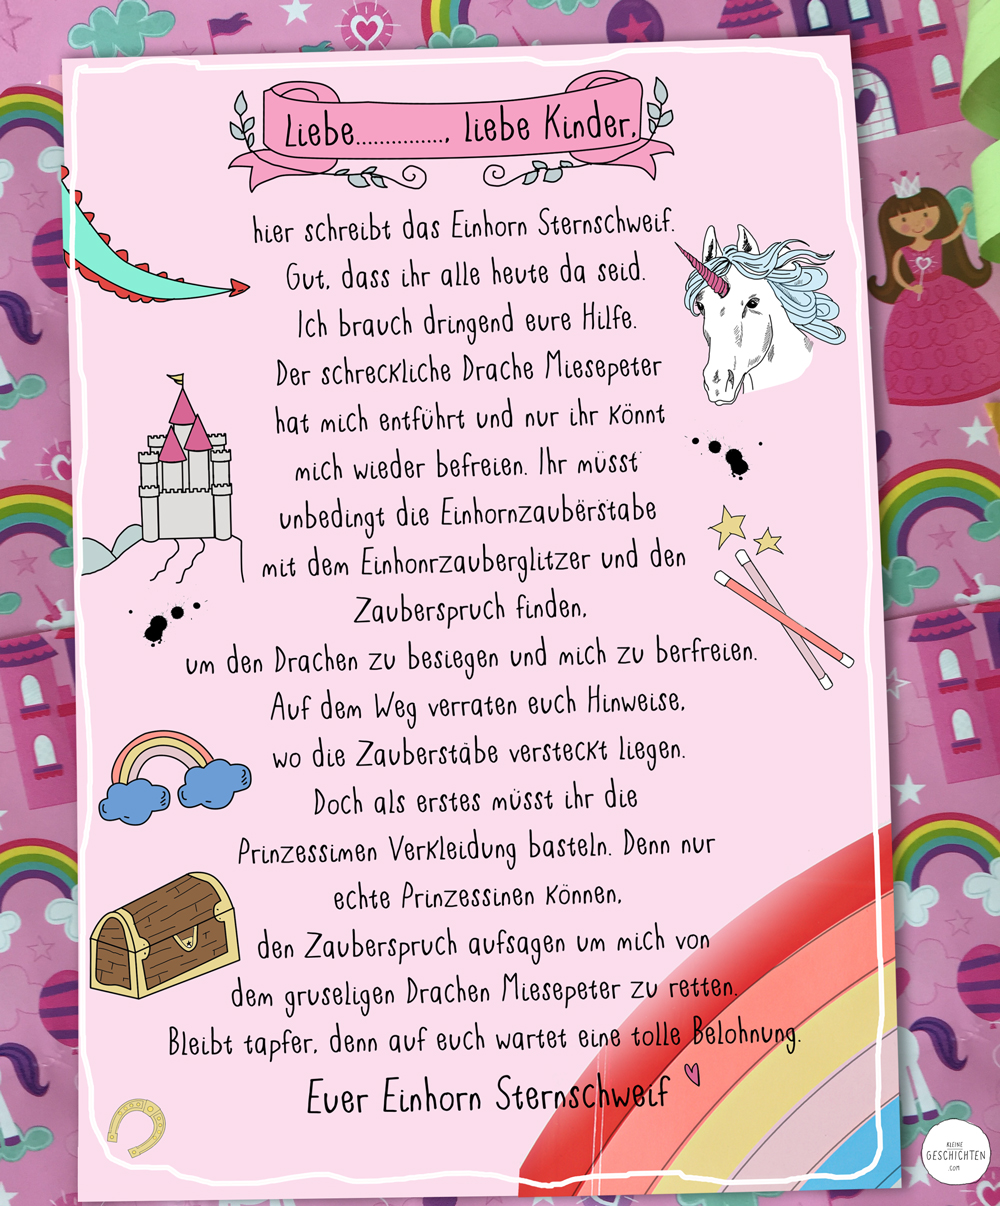 Liebe................, liebe Kinder,
hier schreibt das Einhorn Sternschweif.
Gut, dass ihr alle heute da seid.
Ich brauch dringend eure Hilfe.
Der schreckliche Drache Miesepeter
hat mich entführt und nur ihr könnt
mich wieder befreien. Ihr müsst
unbedingt die Einhornzauberstäbe
mit dem Einhonrzauberglitzer und den
Zauberspruch finden,
um den Drachen zu besiegen und mich zu berfreien.
Auf dem Weg verraten euch Hinweise,
wo die Zauberstäbe versteckt liegen.
Doch als erstes müsst ihr die
Prinzessimen Verkleidung basteln. Denn nur
echte Prinzessinen können,
den Zauberspruch aufsagen um mich von
dem gruseligen Drachen Miesepeter zu retten.
Bleibt tapfer, denn auf euch wartet eine tolle Belohnung.
Euer Einhorn Sternschweif
KLEINE
GESCHICHTEN
.COM